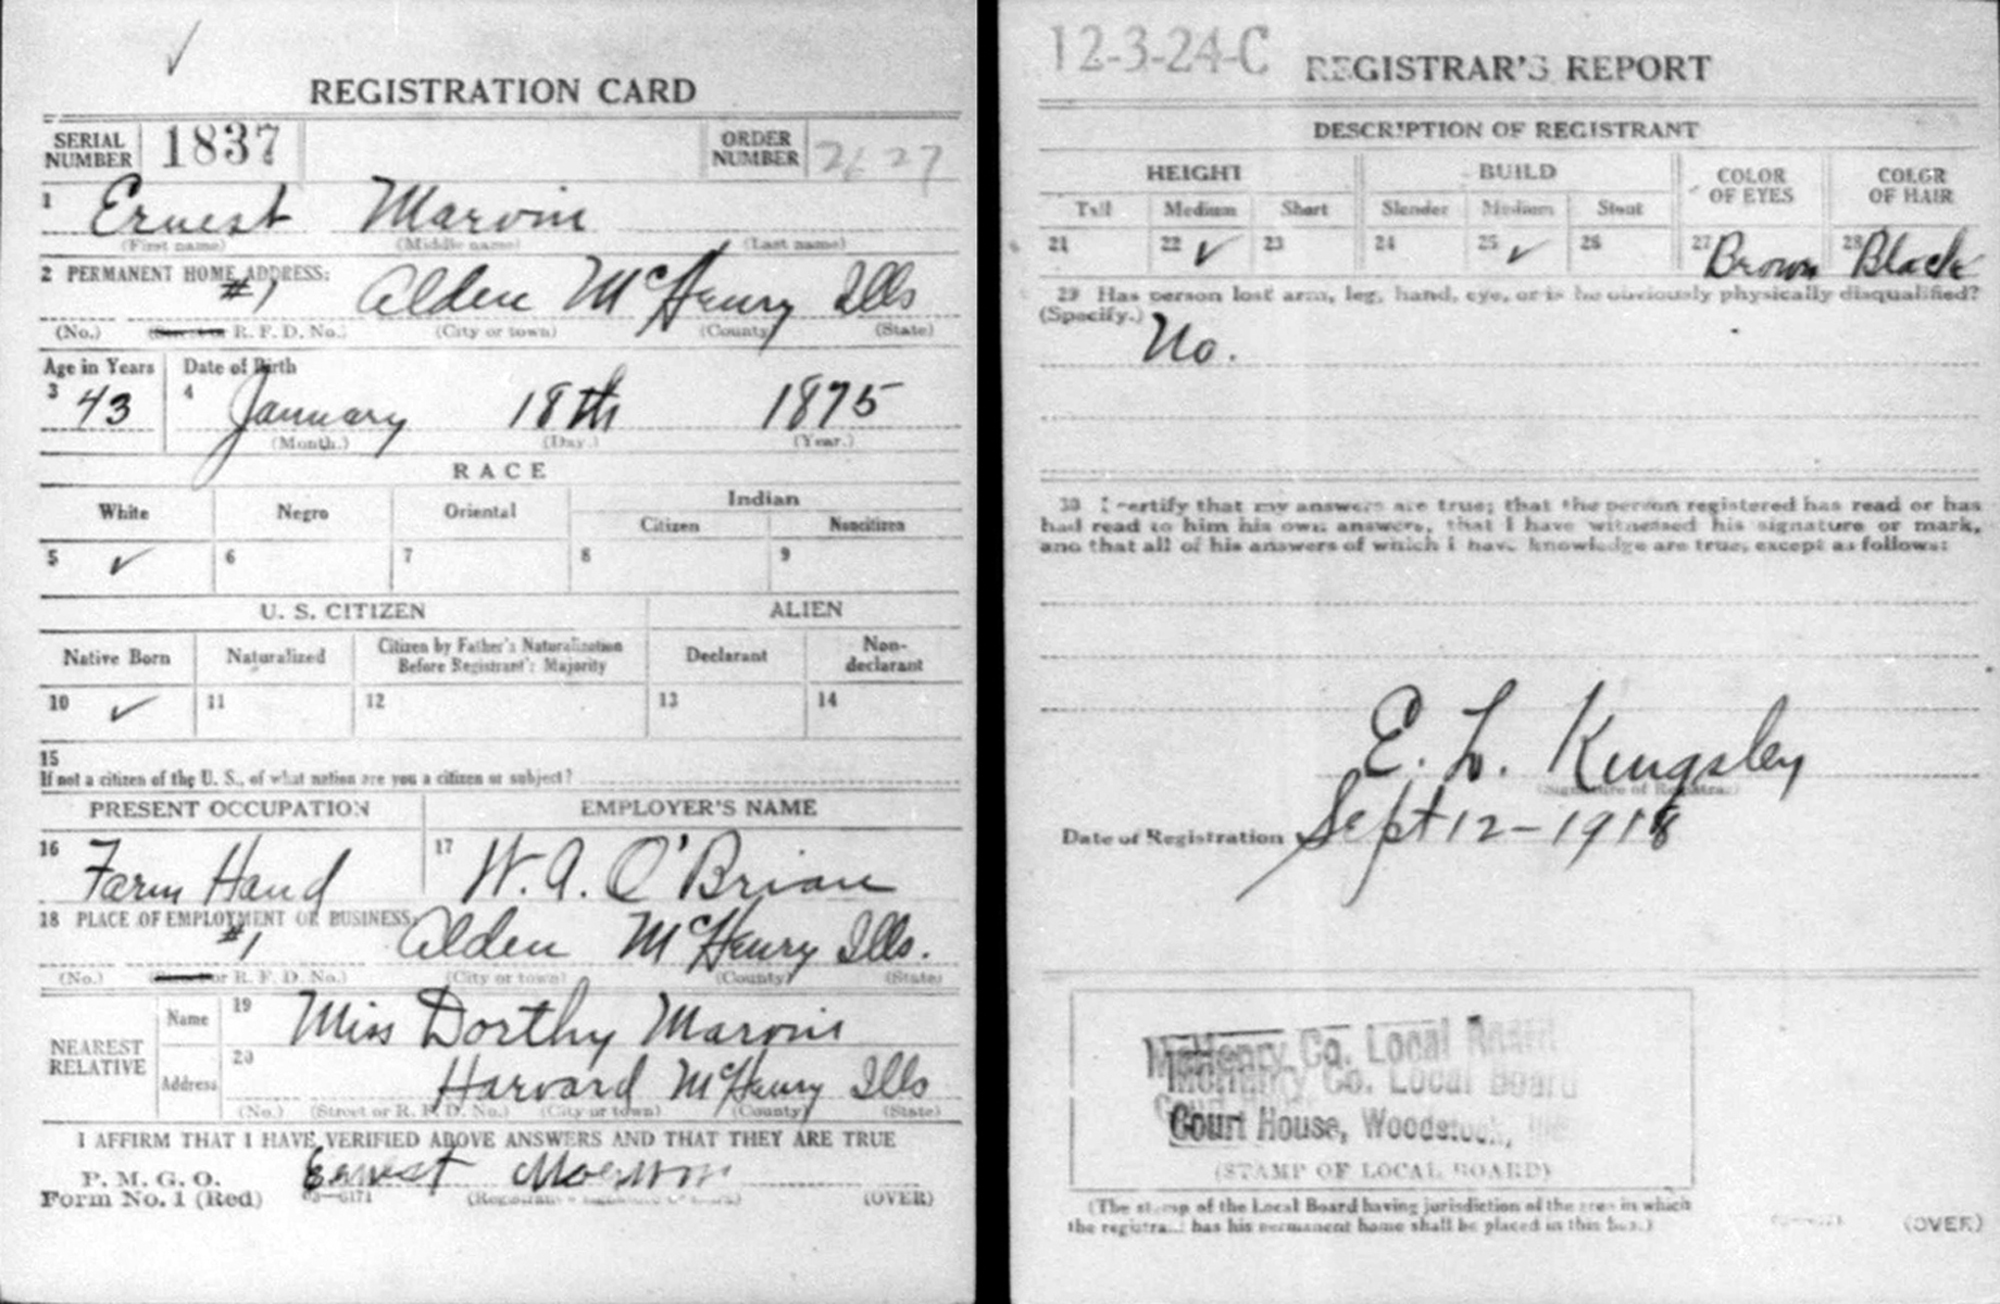 REGISTRATION CARD
SERIAL NUMBER 1837 ORDER NUMBER 2627
1 Ernest Marvin
(First name) (Middle name) (Last name)
2 PERMANENT HOME ADDRESS:
#1 Alden McHenry Ills
(No.) R. F. D. No. (City or town) (County) (State)
Age in Years Date of Birth
3 43 4 January 18th 1875
(Month.) (Day.) (Year.)
RACE
White Negro Oriental Indian
Citizen Noncitizen
5 ✓ 6 7 8 9
U. S. CITIZEN ALIEN
Native Born Naturalized Citizen by Father's Naturalization Before Registrant's Majority Declarant Non-declarant
10 ✓ 11 12 13 14
15
If not a citizen of the U. S., of what nation are you a citizen or subject?
PRESENT OCCUPATION EMPLOYER'S NAME
16 Farm Hand 17 W. A. O'Brian
18 PLACE OF EMPLOYMENT OR BUSINESS:
#1 Alden McHenry Ills.
(No.) or R. F. D. No.) (City or town) (County) (State)
NEAREST RELATIVE Name 19 Miss Dorthy Marvin
Address 20 Harvard McHenry Ills
(No.) (Street or R. F. D. No.) (City or town) (County) (State)
I AFFIRM THAT I HAVE VERIFIED ABOVE ANSWERS AND THAT THEY ARE TRUE
P. M. G. O.
Form No. 1 (Red) 03—6171 Ernest Marvin (OVER)
12-3-24-C REGISTRAR'S REPORT
DESCRIPTION OF REGISTRANT
HEIGHT BUILD COLOR OF EYES COLOR OF HAIR
Tall Medium Short Slender Medium Stout
21 22 ✓ 23 24 25 ✓ 26 27 Brown 28 Black
29 Has person lost arm, leg, hand, eye, or is he obviously physically disqualified?
(Specify.) No.
30 I certify that my answers are true; that the person registered has read or has
had read to him his own answers, that I have witnessed his signature or mark,
and that all of his answers of which I have knowledge are true, except as follows:
E. L. Kingsley
(Signature of Registrar)
Date of Registration Sept 12-1918
McHenry Co. Local Board
McHenry Co. Local Board
Court House, Woodstock,
(STAMP OF LOCAL BOARD)
(The stamp of the Local Board having jurisdiction of the area in which
the registrant has his permanent home shall be placed in this box.)
(OVER)